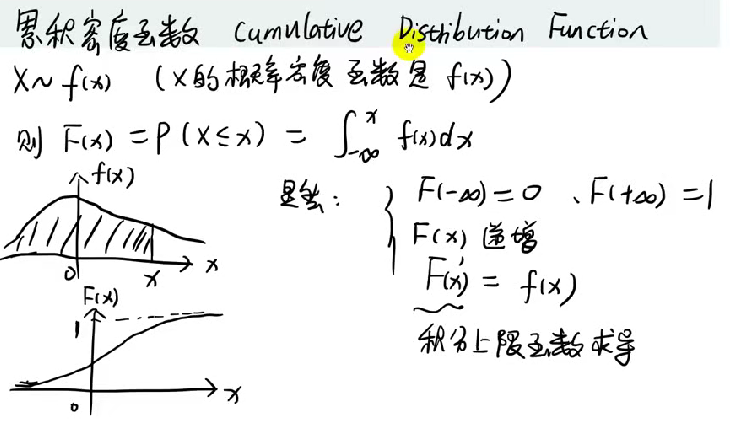 累积密度函数 Cumulative Distribution Function
X~f(x) (X的概率密度函数是 f(x))
则 F(x) = P(X≤x) = ∫_{-∞}^{x} f(x)dx
f(x)
0 x x
显然: { F(-∞)=0 、F(+∞)=1
F(x) 递增
F'(x) = f(x)
积分上限函数求导
F(x)
1
0 x